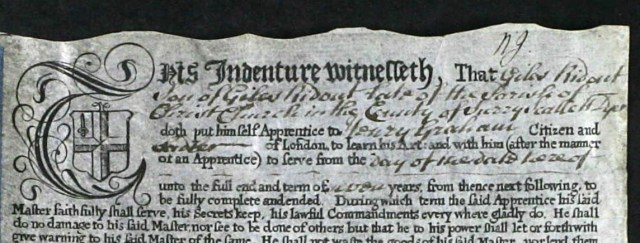 This Indenture witnesseth, That Giles Ridout
Son of Giles Ridout late of the Parish of
Christ Church in the County of Surry
doth put himself Apprentice to Henry Graham Citizen and
of London, to learn his Art: and with him (after the manner
of an Apprentice) to serve from the Day of the date hereof
unto the full end and term of seven years, from thence next following, to
be fully complete and ended. During which term the said Apprentice his said
Master faithfully shall serve, his Secrets keep, his lawful Commandments every where gladly do. He shall
do no damage to his said Master, nor see to be done of others but that he to his power shall let or forthwith
give warning to his said Master of the same. He shall not waste the goods of his said Master, nor lend them